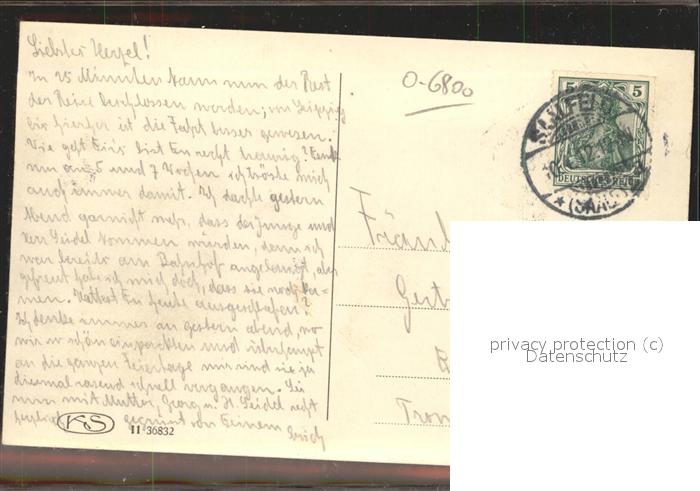 Liebster Herzel!
In 25 Minuten kann nun der Rest
der Reise beschlossen werden; von Leipzig
bis hierher ist die Fahrt besser gewesen.
Wie geht's Dir? bist Du recht traurig? Denk
nur an 5 und 7 Wochen ich tröste mich
auch immer damit. Ich dachte gestern
Abend garnicht mehr, dass der Junge und
Herr Seidel kommen würden, denn ich
war bereits am Bahnhof angelangt, aber
gefreut habe ich mich doch, dass sie noch ka-
men. Hattest Du heute ausgeschlafen?
Ich denke immer an gestern abend, wo
wir so schön einpackten und überhaupt
an die ganzen Feiertage nur sind sie ja
diesmal rasend schnell vergangen. Sei
nun mit Mutter, Georg u. H. Seidel recht
herzlich gegrüsst von Deinem
Erich
KS
11 36832
0-6800
5 5
DEUTSCHES REICH
SAALFELD
* (SAALE)
Fräul
Gert
Trom
privacy protection (c)
Datenschutz